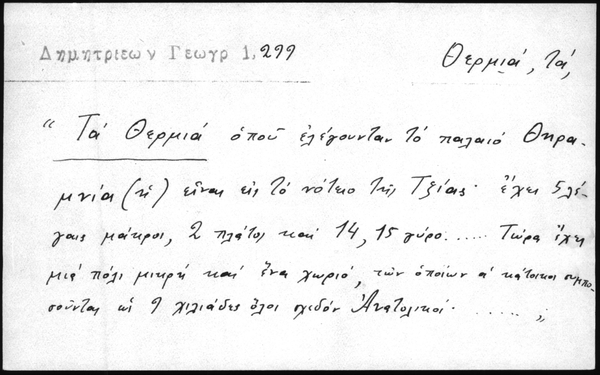 Δημητριεων Γεωγρ 1, 299
Θερμιά, τά,
“ Τά Θερμιά ὁποῦ ἐλέγουνταν τό παλαιό Θηρα-
μνία (ή) εἶναι εἰς τό νότειο τῆς Τζίας· ἔχει 5 λέ-
γαις μάκρος, 2 πλάτος καί 14, 15 γύρο..... Τώρα ἔχει
μιά πόλι μικρή καί ἕνα χωριό, τῶν ὁποίων οἱ κάτοικοι συμπο-
σοῦνται ὡς 9 χιλιάδες ὅλοι σχεδόν Ἀνατολικοί· ...... „